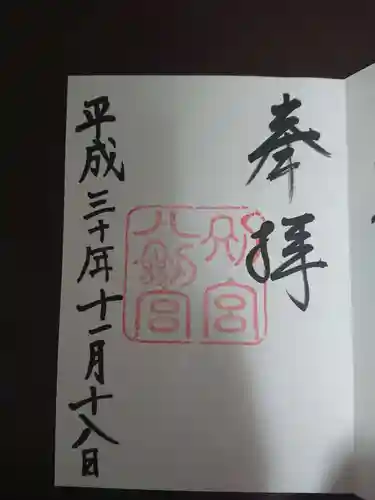 奉拝
八剣宮
別宮
平成三十年十一月十八日